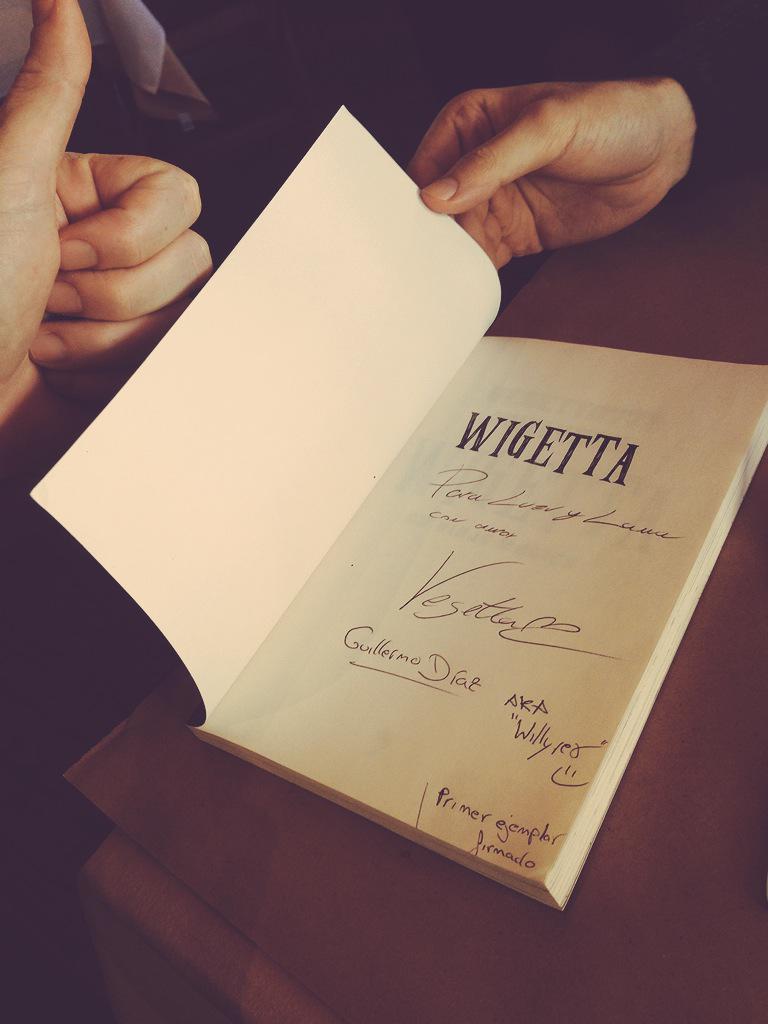 WIGETTA
Para Luzu y Lana
con amor
Vegetta
Guillermo Díaz
AKA
"Willyrex"
Primer ejemplar
firmado